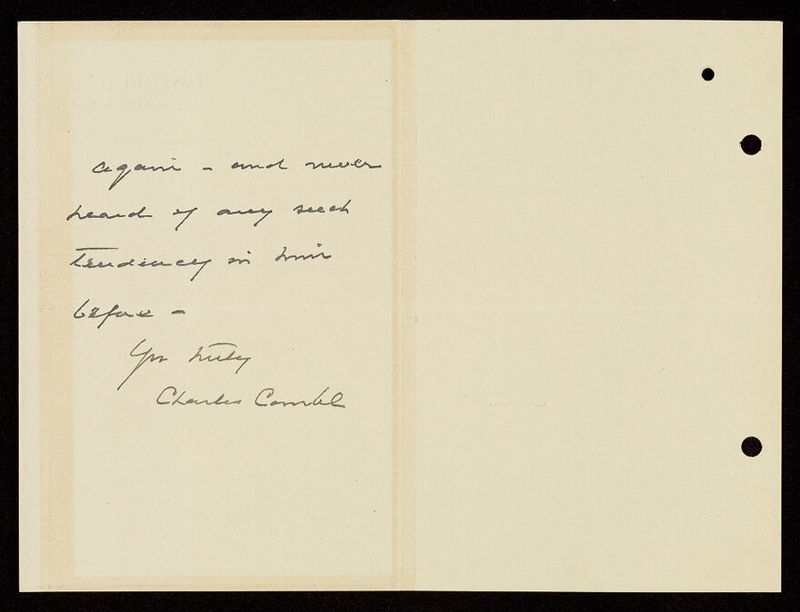 again - and never
heard of any such
tendency in him
before -
Yrs truly
Charles